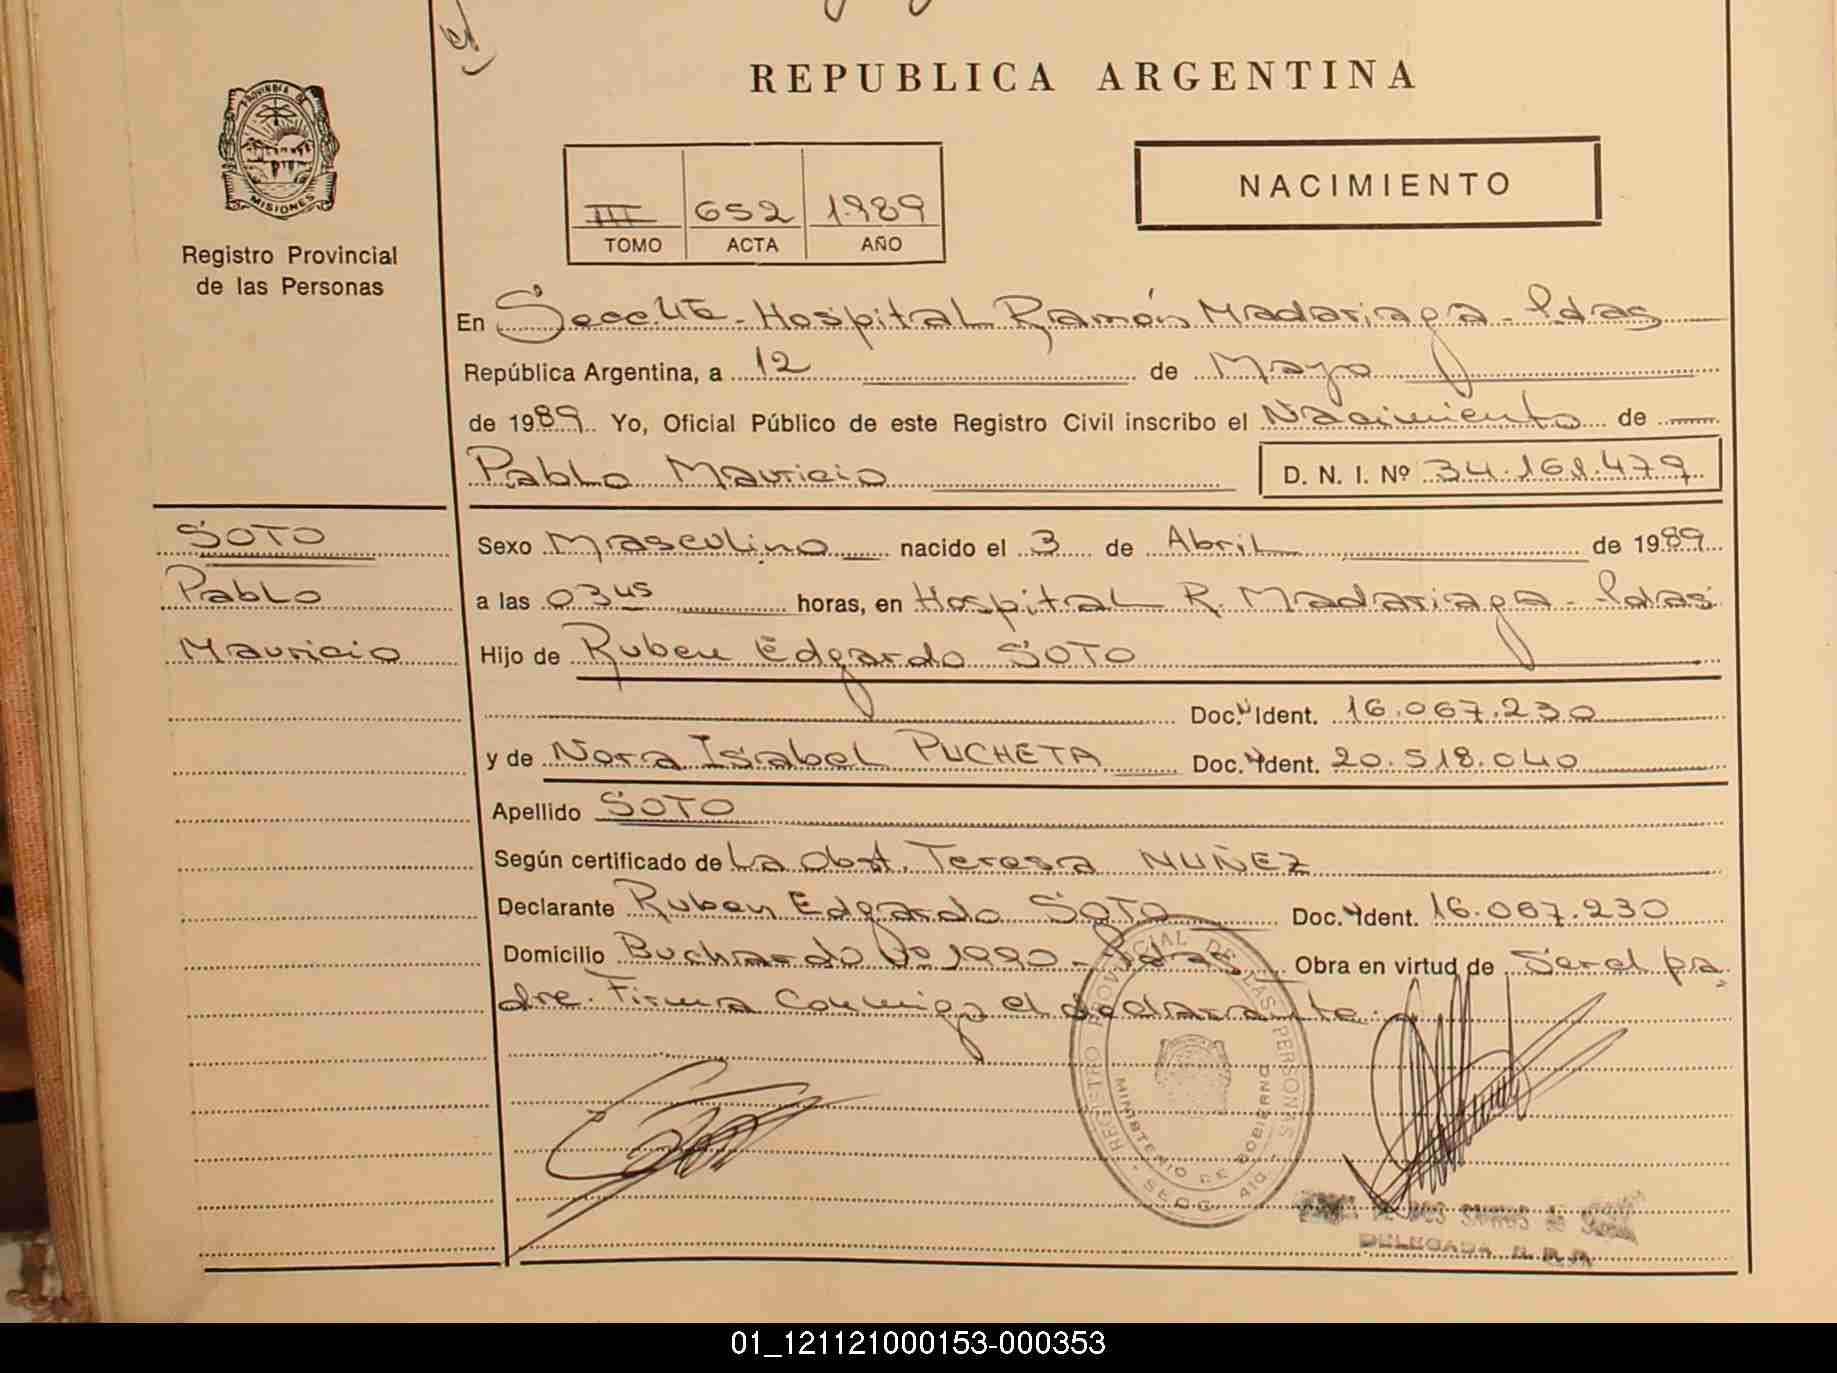 REPUBLICA ARGENTINA
PROVINCIA DE
MISIONES
Registro Provincial
de las Personas
III 652 1989
TOMO ACTA AÑO
NACIMIENTO
En Secc. 4ta - Hospital Ramón Madariaga - Pdas
República Argentina, a 12 de Mayo
de 1989 Yo, Oficial Público de este Registro Civil inscribo el Nacimiento de
Pablo Mauricio D. N. I. Nº 34.168.479
SOTO
Pablo
Mauricio
Sexo Masculino nacido el 3 de Abril de 1989
a las 03 45 horas, en Hospital R. Madariaga - Pdas
Hijo de Ruben Edgardo SOTO
Doc. Ident. 16.067.230
y de Nora Isabel PUCHETA Doc. Ident. 20.518.040
Apellido SOTO
Según certificado de La Obst. Teresa NUÑEZ
Declarante Ruben Edgardo SOTO Doc. Ident. 16.067.230
Domicilio Buchardo Nº 1990 - Pdas Obra en virtud de Ser el pa
dre. Firma Conmigo el declarante.
REGISTRO PROVINCIAL DE LAS PERSONAS
MINISTERIO DE GOBIERNO
DELEGADA R. P. P.
01_121121000153-000353